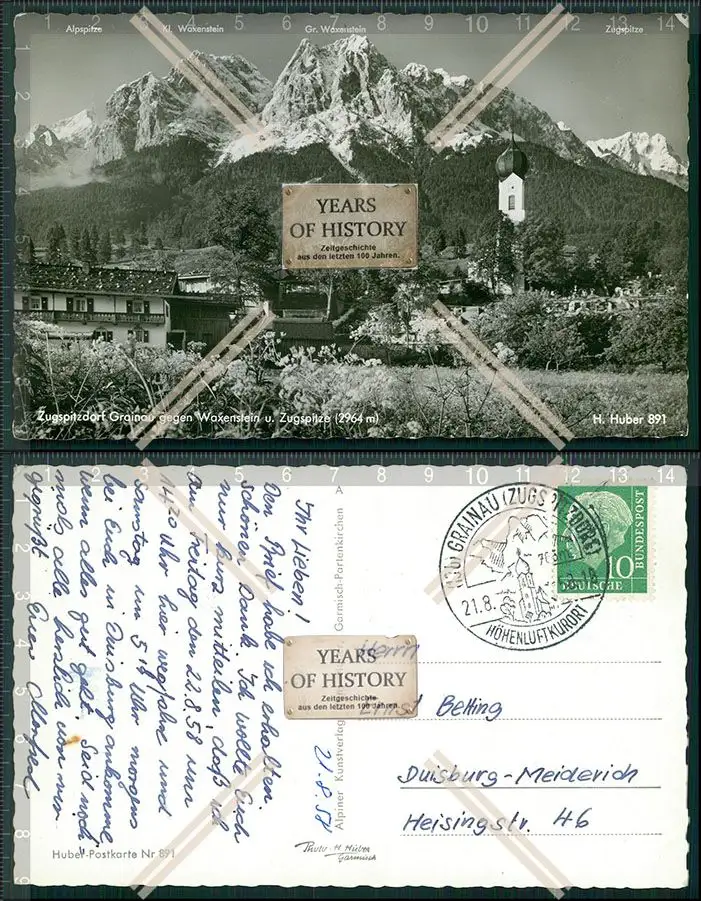 Alpspitze Kl. Waxenstein Gr. Waxenstein Zugspitze
YEARS
OF HISTORY
Zeitgeschichte
aus den letzten 100 Jahren.
Zugspitzdorf Grainau gegen Waxenstein u. Zugspitze (2964 m)
H. Huber 891
21.8.58
Ihr Lieben!
Den Brief habe ich erhalten.
Schönen Dank. Ich wollte Euch
nur kurz mitteilen, daß ich
am Freitag den 22.8.58 um
14.20 Uhr hier wegfahre und
Samstag um 5 Uhr morgens
bei Euch in Duisburg ankomme,
wenn alles gut geht. Seid noch-
mals alle herzlich von mir
gegrüßt Euer Manfred
Huber-Postkarte Nr 891
Alpiner Kunstverlag Garmisch-Partenkirchen
Photo-H. Huber
Garmisch
YEARS
OF HISTORY
Zeitgeschichte
aus den letzten 100 Jahren.
GRAINAU
21.8.
HÖHENLUFTKURORT
10
DEUTSCHE
BUNDESPOST
Herrn
Ernst Belting
Duisburg-Meiderich
Heisingstr. 46